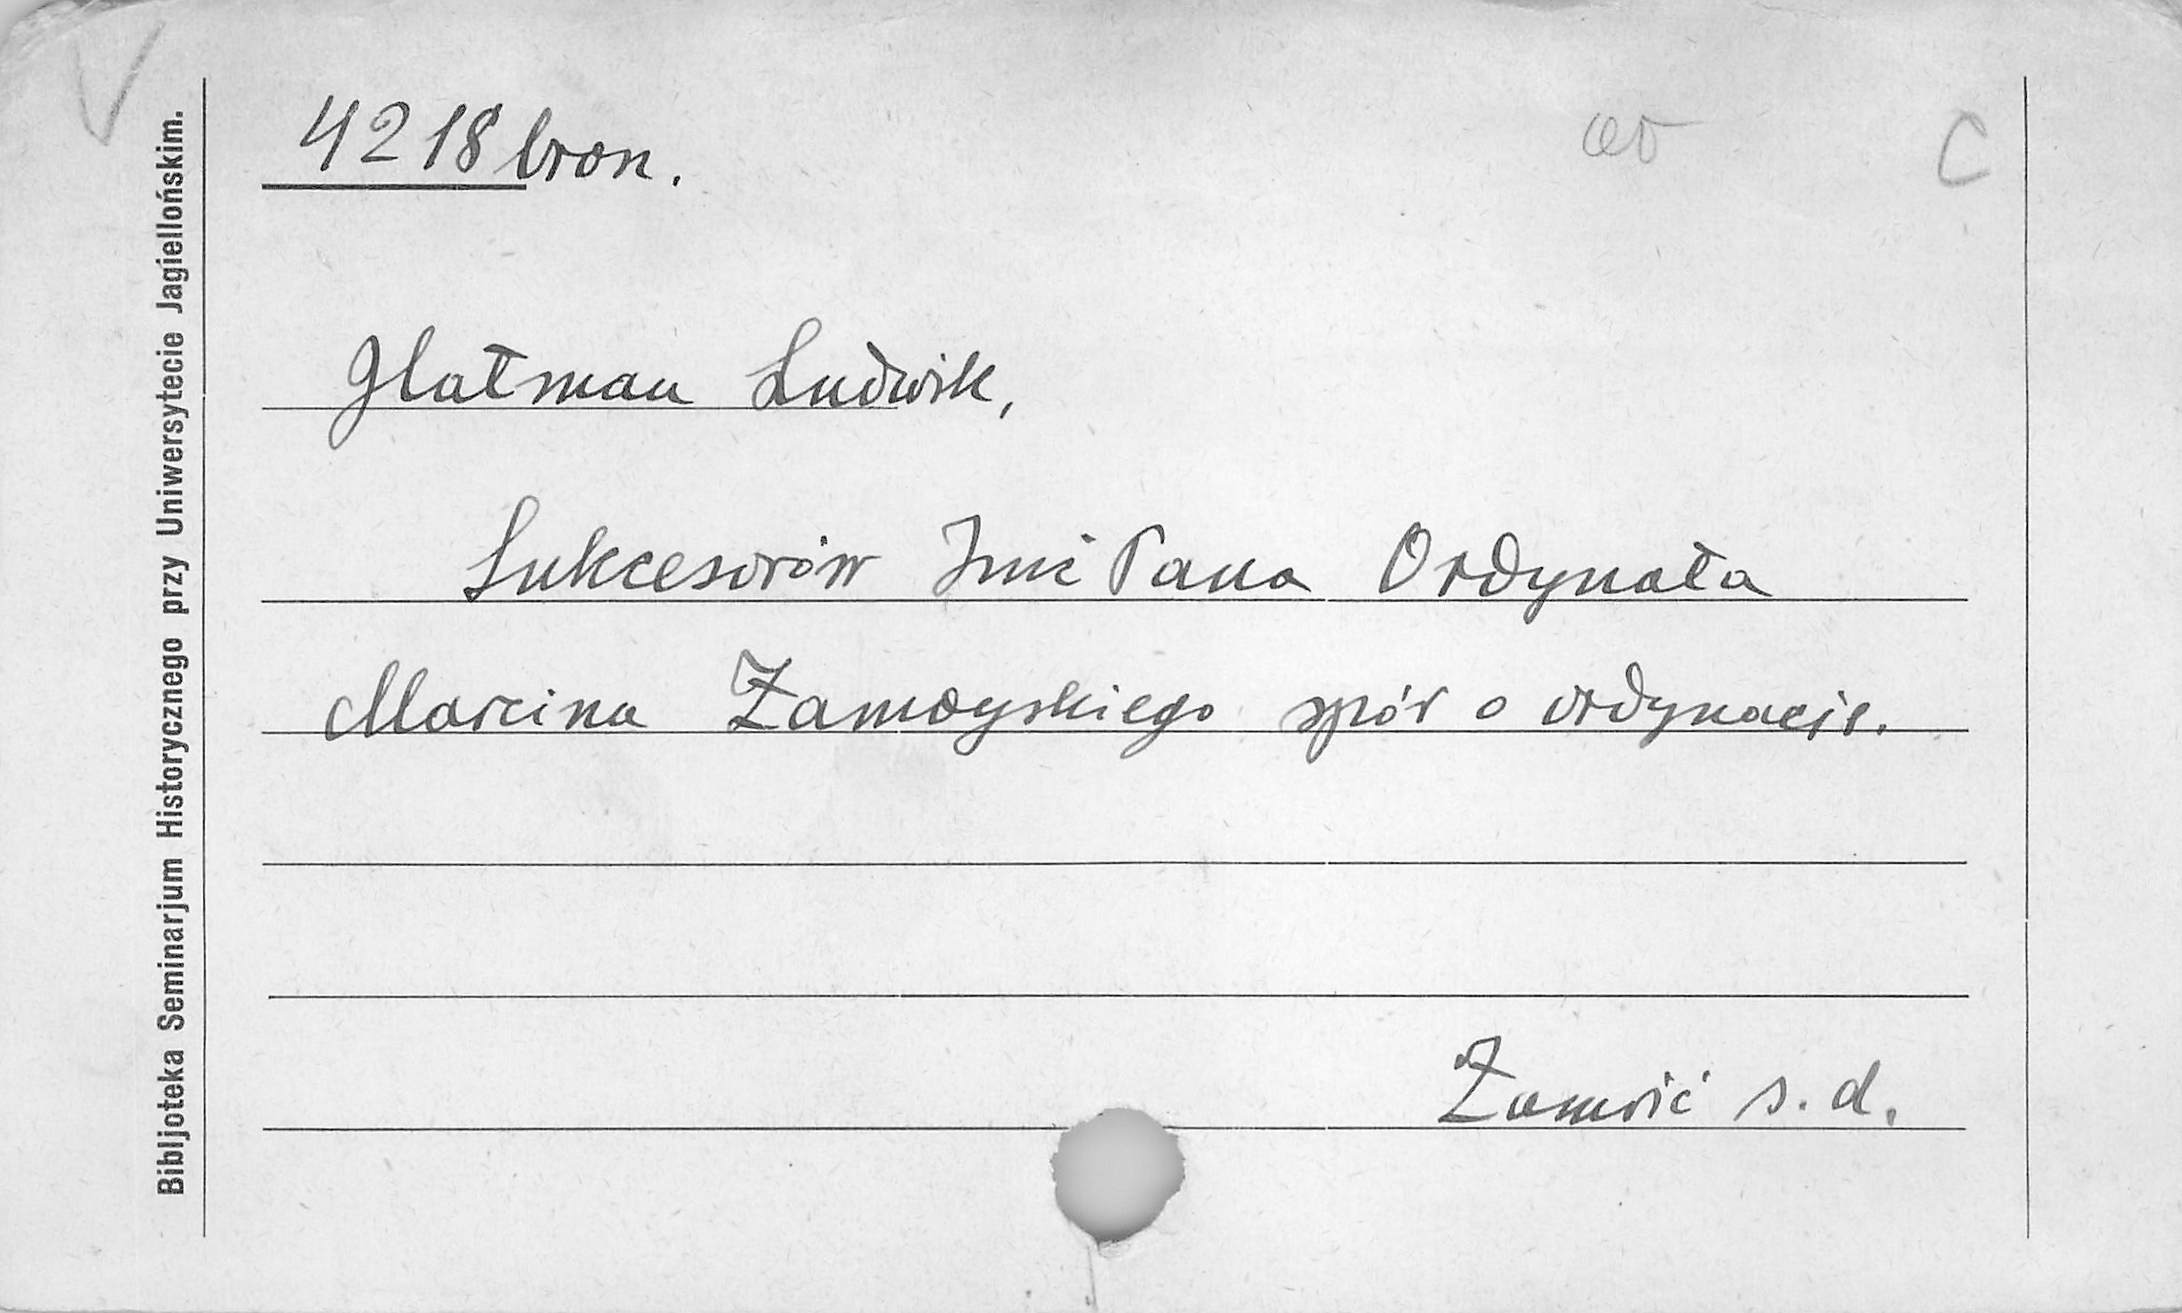 4218 bron.
C
Glatman Ludwik,
Sukcesorów Jmć Pana Ordynata
Marcina Zamoyskiego spór o ordynację.
Zamość s. d.
Bibljoteka Seminarjum Historycznego przy Uniwersytecie Jagiellońskim.